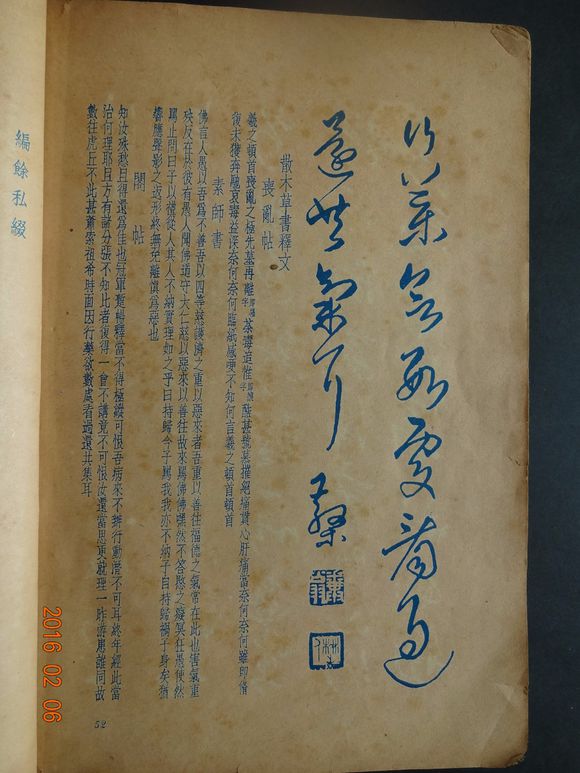 行藥欲數處看過
還共集耳
散木草書釋文
喪亂帖
羲之頓首喪亂之極先墓再離荼毒追惟酷甚號慕摧絕痛貫心肝痛當奈何奈何雖即脩
復未獲奔馳哀毒益深奈何奈何臨紙感哽不知何言羲之頓首頓首
素師書
佛言人愚以吾爲不善吾以四等慈護濟之重以惡來者吾重以善往福德之氣常在此也害氣重
殃反在於彼有愚人聞佛道守大仁慈以惡來以善往故來罵佛佛嘿然不答愍之癡冥狂愚使然
罵止問曰子以禮從人其人不納實理如之乎曰持歸今子罵我我亦不納子自持歸禍子身矣猶
響應聲影之追形終無免離慎爲惡也
閣帖
知汝殊愁且得還爲佳也冠軍暫暢釋當不得極蹤可恨吾病來不辦行動潛不可耳終年經此當
治何理耶且方有諸分張不知比者復得一會不講竟不可恨汝還當思更就理一昨游悉誰同故
數往虎丘不此甚蕭索祖希時面因行藥欲數處看過還共集耳
編餘私綴
52
2016 02 06